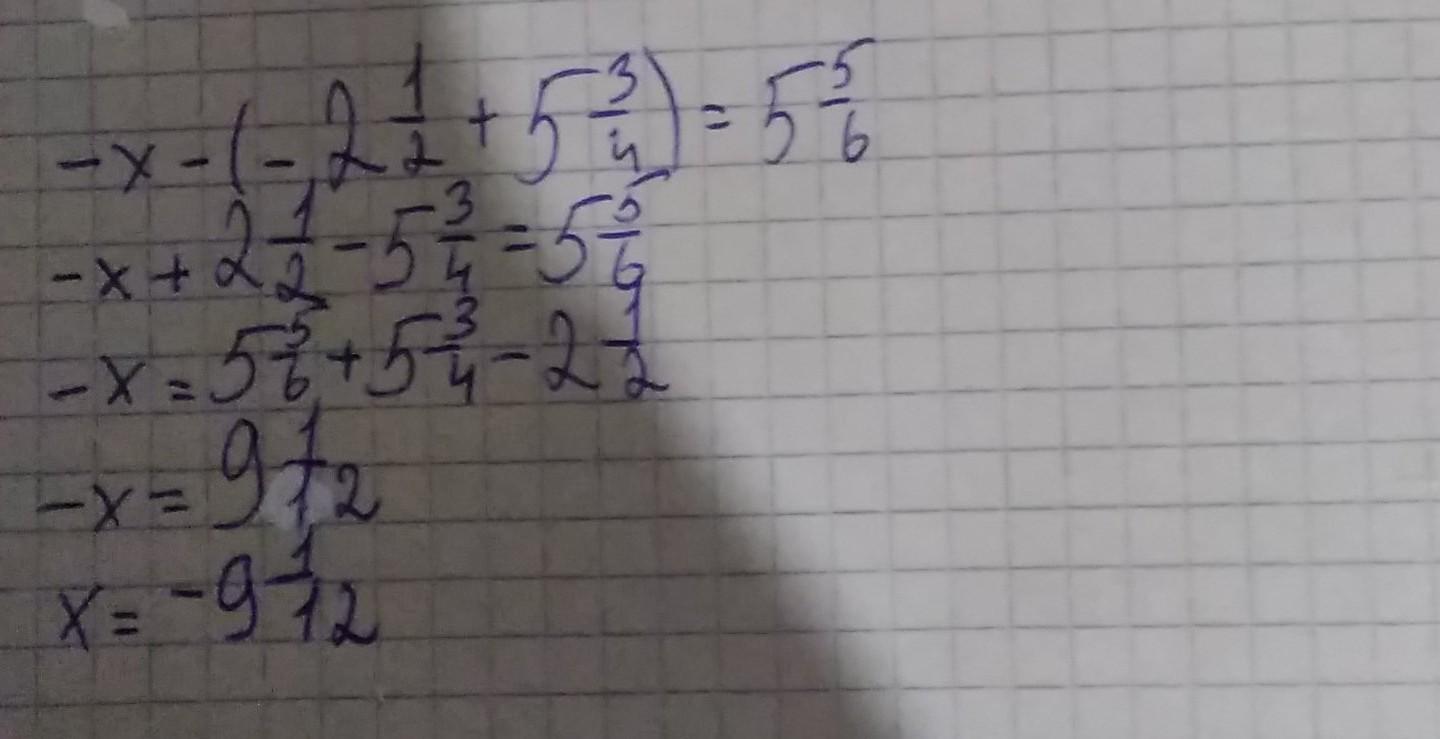 -x - (-2 1/2 + 5 3/4) = 5 5/6
-x + 2 1/2 - 5 3/4 = 5 5/6
-x = 5 5/6 + 5 3/4 - 2 1/2
-x = 9 1/12
x = -9 1/12